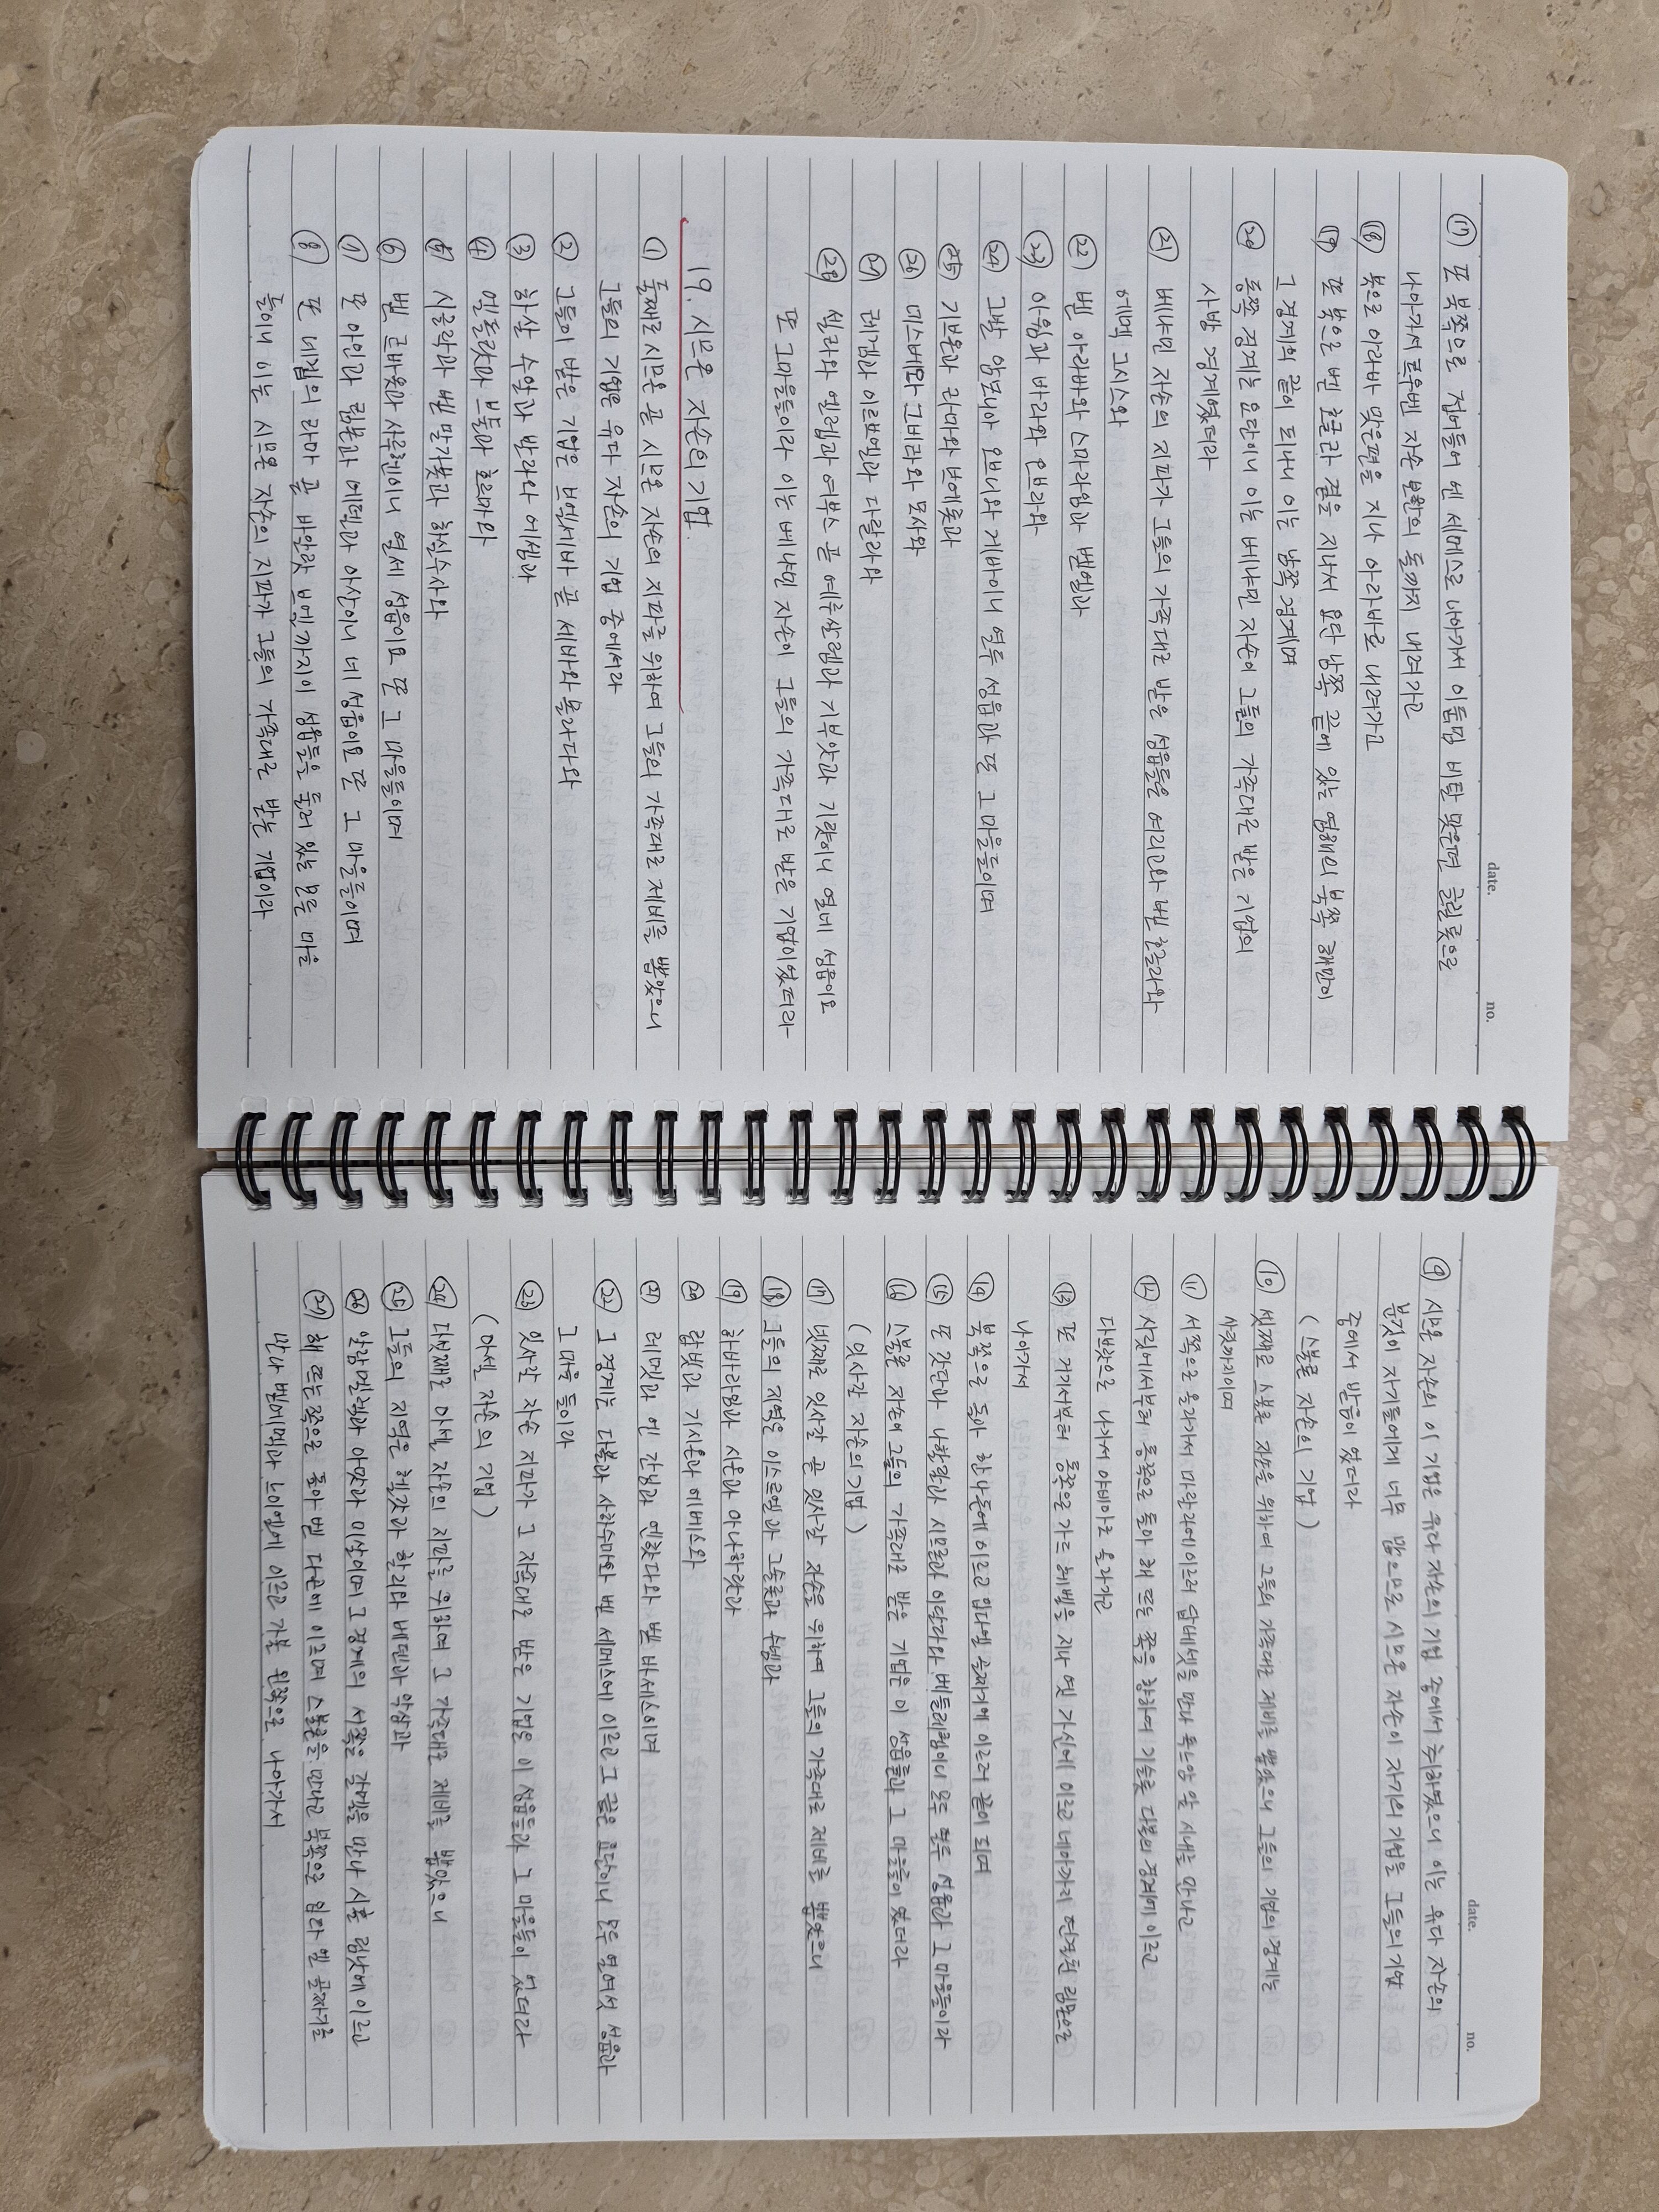 date. no.
⑰ 또 북쪽으로 접어들어 엔 세메스로 나아가서 아둠밈 비탈 맞은편 글릴롯으로
나아가서 르우벤 자손 보한의 돌까지 내려가고
⑱ 북으로 아라바 맞은편을 지나 아라바로 내려가고
⑲ 또 북으로 벧 호글라 곁을 지나서 요단 남쪽 끝에 있는 염해의 북쪽 해만이
그 경계의 끝이 되나니 이는 남쪽 경계며
⑳ 동쪽 경계는 요단이니 이는 베냐민 자손이 그들의 가족대로 받은 기업의
사방 경계였더라
㉑ 베냐민 자손의 지파가 그들의 가족대로 받은 성읍들은 여리고와 벧 호글라와
에멕 그시스와
㉒ 벧 아라바와 스마라임과 벧엘과
㉓ 아윔과 바라와 오브라와
㉔ 그발 암모니와 오브니와 게바이니 열두 성읍과 또 그 마을들이며
㉕ 기브온과 라마와 브에롯과
㉖ 미스베와 그비라와 모사와
㉗ 레겜과 이르브엘과 다랄라와
㉘ 셀라와 엘렙과 여부스 곧 예루살렘과 기부앗과 기럇이니 열네 성읍이요
또 그 마을들이라 이는 베냐민 자손이 그들의 가족대로 받은 기업이었더라
19. 시므온 자손의 기업
① 둘째로 시므온 곧 시므온 자손의 지파를 위하여 그들의 가족대로 제비를 뽑았으니
그들의 기업은 유다 자손의 기업 중에서라
② 그들이 받은 기업은 브엘세바 곧 세바와 몰라다와
③ 하살 수알과 발라와 에셈과
④ 엘돌랏과 브둘과 호르마와
⑤ 시글락과 벧 말가봇과 하살수사와
⑥ 벧 르바옷과 사루헨이니 열세 성읍이요 또 그 마을들이며
⑦ 또 아인과 림몬과 에델과 아산이니 네 성읍이요 또 그 마을들이며
⑧ 또 네겝의 라마 곧 바알랏 브엘까지이 성읍들을 둘러 있는 모든 마을
들이니 이는 시므온 자손의 지파가 그들의 가족대로 받은 기업이라
date. no.
⑨ 시므온 자손의 이 기업은 유다 자손의 기업 중에서 취하였으니 이는 유다 자손의
분깃이 자기들에게 너무 많으므로 시므온 자손이 자기의 기업을 그들의 기업
중에서 받음이 었더라
(스불론 자손의 기업)
⑩ 셋째로 스불론 자손을 위하여 그들의 가족대로 제비를 뽑았으니 그들의 기업의 경계는
사릿까지이며
⑪ 서쪽으로 올라가서 마랄라에 이르러 답베셋을 만나 욕느암 앞 시내를 만나고
⑫ 사릿에서부터 동쪽으로 돌아 해 뜨는 쪽을 향하여 기슬롯 다볼의 경계에 이르고
다브랏으로 나가서 야비아로 올라가고
⑬ 또 거기서부터 동쪽으로 가드 헤벨을 지나 엣 가신에 이르고 네아까지 연결된 림몬으로
나아가서
⑭ 북쪽으로 돌아 한나돈에 이르고 입다엘 골짜기에 이르러 끝이 되며
⑮ 또 갓닷과 나할랄과 시므론과 이달라와 베들레헴이니 모두 열두 성읍과 그 마을들이라
⑯ 스불론 자손이 그들의 가족대로 받은 기업은 이 성읍들과 그 마을들이 었더라
(잇사갈 자손의 기업)
⑰ 넷째로 잇사갈 곧 잇사갈 자손을 위하여 그들의 가족대로 제비를 뽑았으니
⑱ 그들의 지역은 이스르엘과 그술롯과 수넴과
⑲ 하바라임과 시온과 아나하랏과
⑳ 랍빗과 기시온과 에베스와
㉑ 레멧과 언 간님과 엔핫다와 벧 바세스이며
㉒ 그 경계는 다볼과 사하수마와 벧 세메스에 이르고 그 끝은 요단이니 모두 열여섯 성읍과
그 마을 들이라
㉓ 잇사갈 자손 지파가 그 가족대로 받은 기업은 이 성읍들과 그 마을들이 었더라
(아셀 자손의 기업)
㉔ 다섯째로 아셀 자손의 지파를 위하여 그 가족대로 제비를 뽑았으니
㉕ 그들의 지역은 헬갓과 할리와 베덴과 악삽과
㉖ 알람멜렉과 아맛과 미살이며 그 경계의 서쪽은 갈멜을 만나 시홀 림낫에 이르고
㉗ 해 뜨는 쪽으로 돌아 벧 다곤에 이르며 스불론을 만나고 북쪽으로 입다 엘 골짜기를
만나 벧에멕과 느이엘에 이르고 가불 왼쪽으로 나아가서